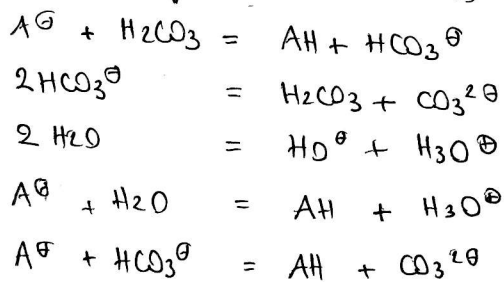 A⊖ + H2CO3 = AH + HCO3⊖
2HCO3⊖ = H2CO3 + CO3 2⊖
2 H2O = HO⊖ + H3O⊕
A⊖ + H2O = AH + H3O⊕
A⊖ + HCO3⊖ = AH + CO3 2⊖